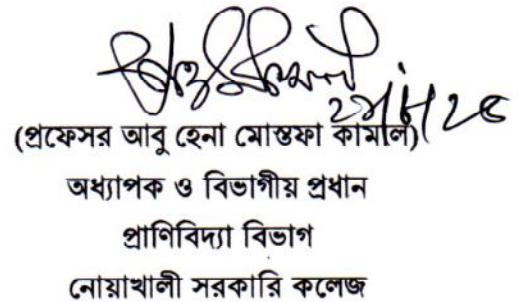 (প্রফেসর আবু হেনা মোস্তফা কামাল)
অধ্যাপক ও বিভাগীয় প্রধান
প্রাণিবিদ্যা বিভাগ
নোয়াখালী সরকারি কলেজ